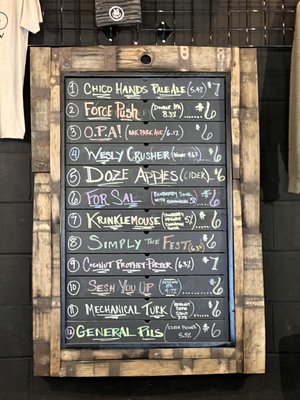 1 CHICO HANDS PALE ALE (5.4%) $7
2 FORCE PUSH (DOUBLE IPA 8.3%) $6
3 O.P.A! (OAK PARK ALE/6.1%) $6
4 WESLY CRUSHER $6
5 DOZE APPLES (CIDER) $6
6 FOR SAL (BLUEBERRY SOUR 5%) $6
7 KRINKLEMOUSE $6
8 SIMPLY THE FEST (6.3%) $6
9 COCONUT PROPHET PORTER (6%) $7
10 SESH YOU UP $6
11 MECHANICAL TURK $6
12 GENERAL PILS (CZECH PILSNER 5.5%) $6